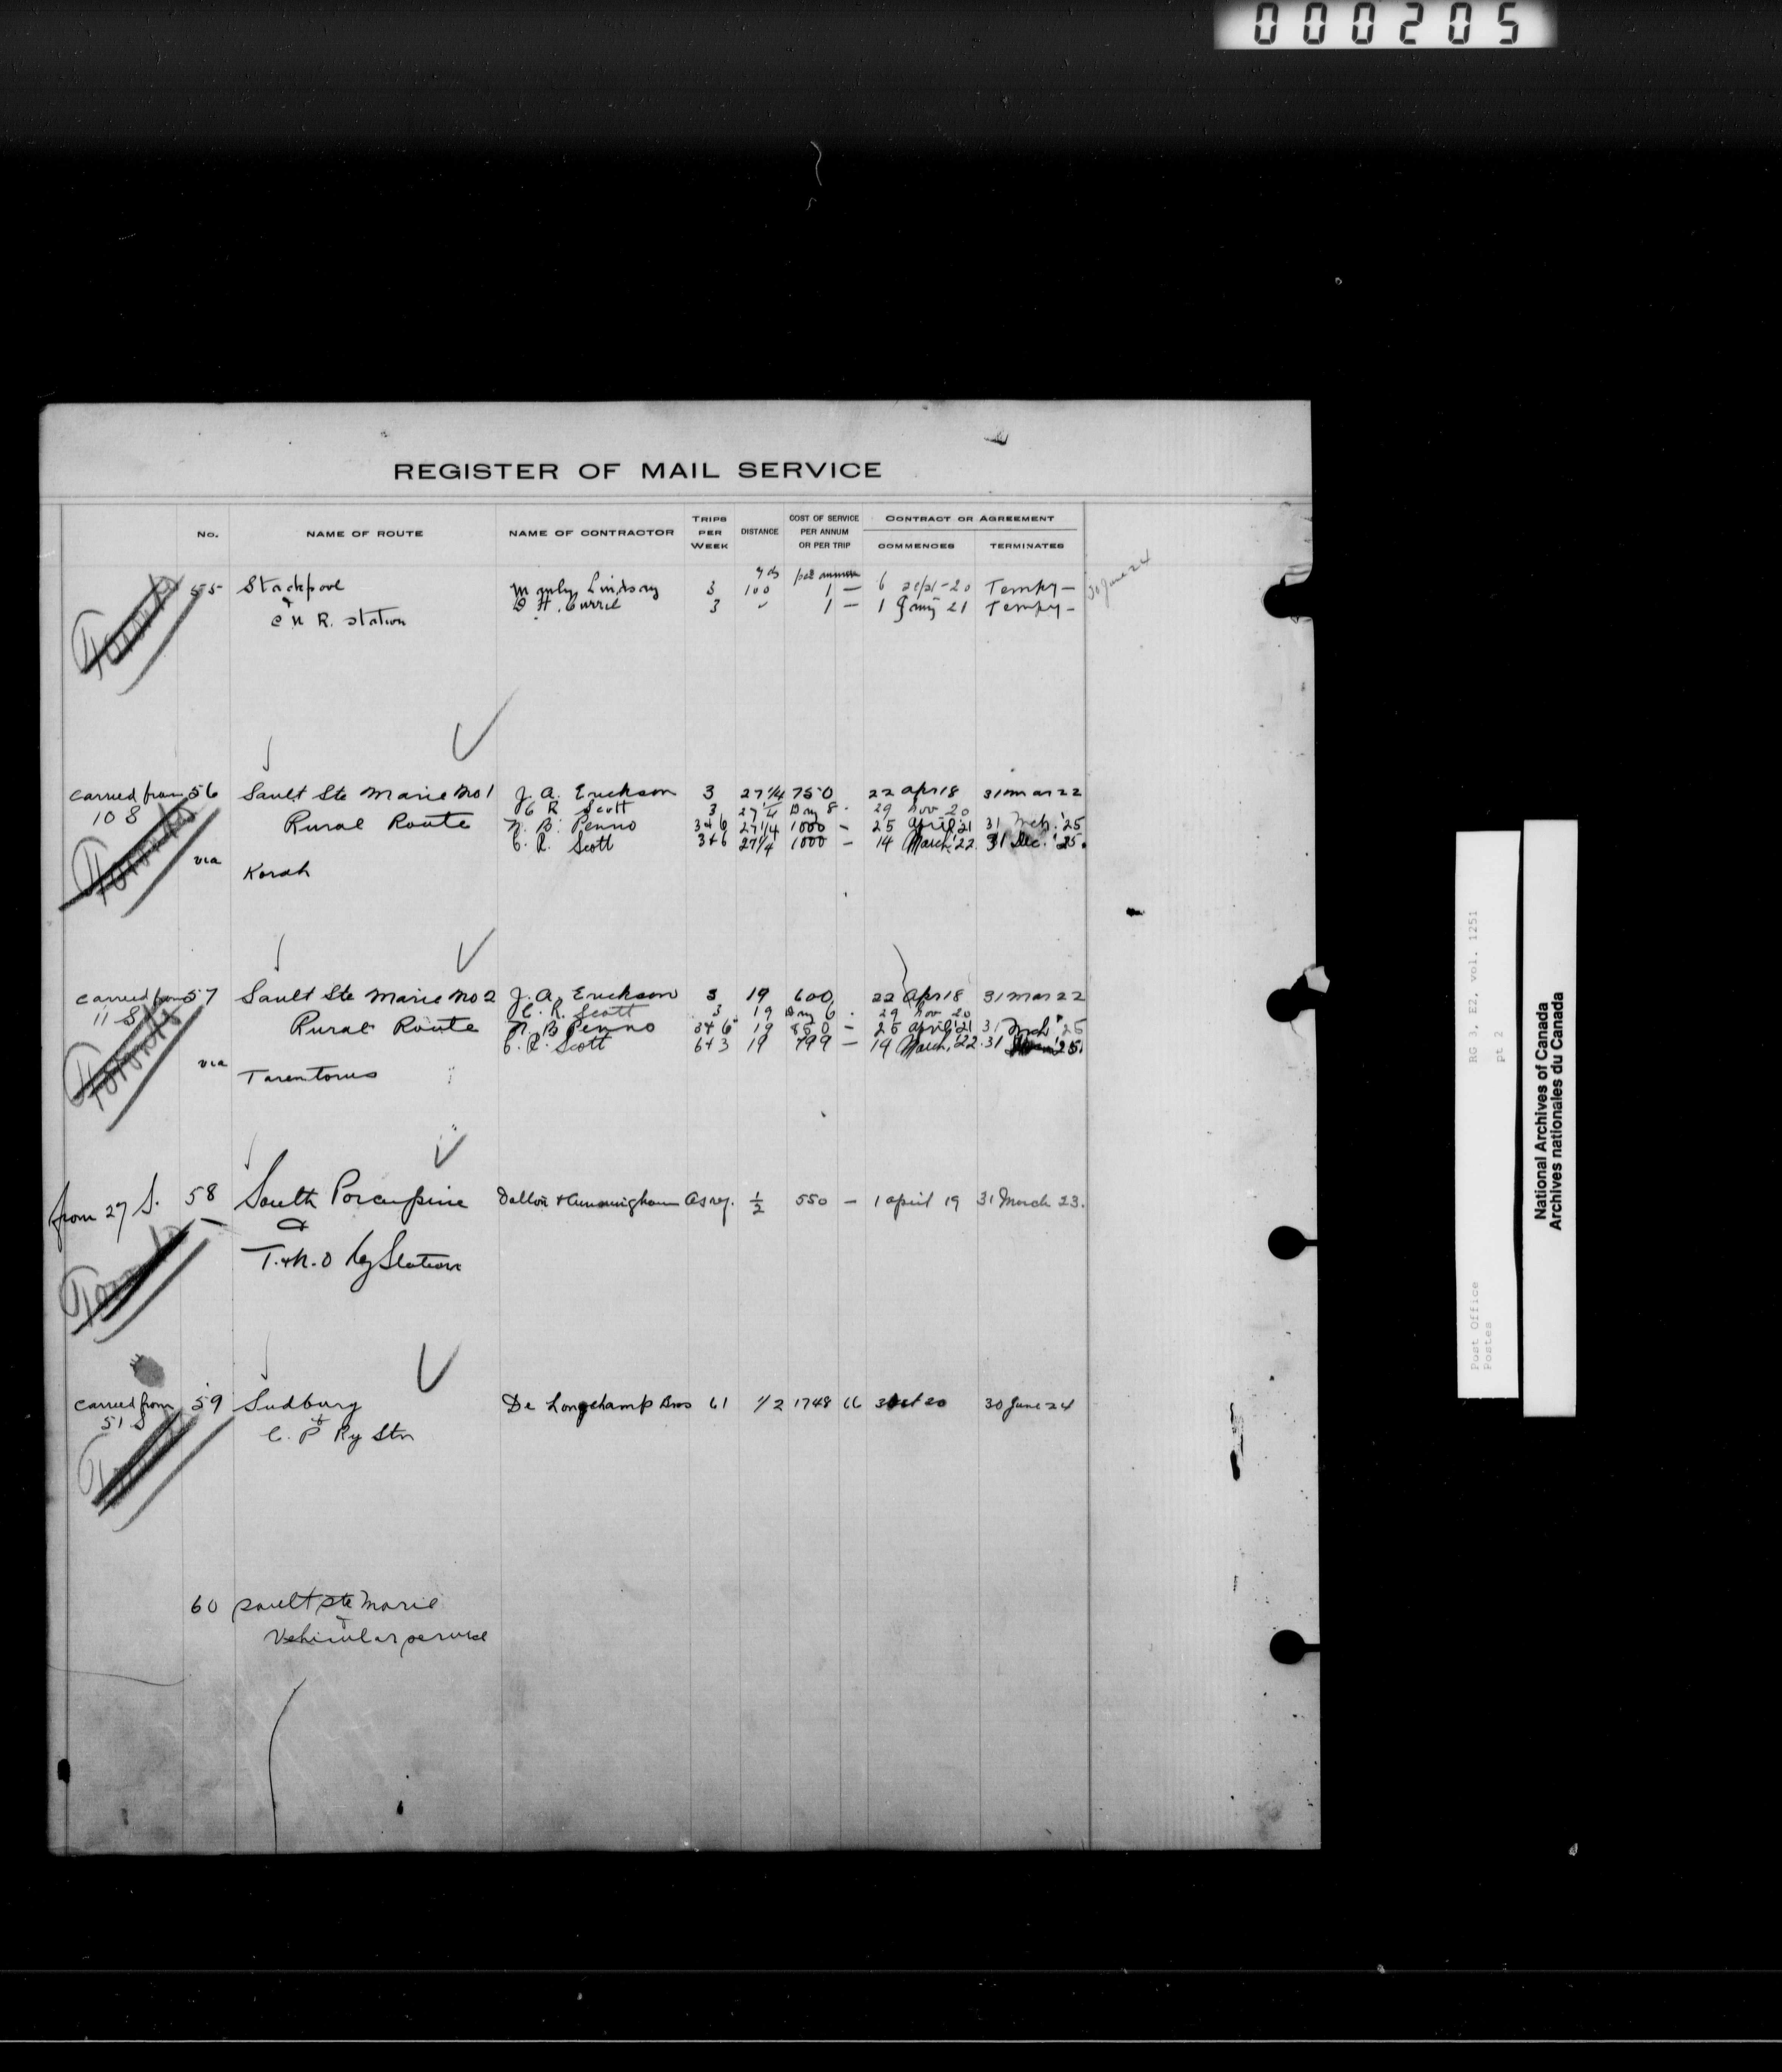 000205
REGISTER OF MAIL SERVICE
No. NAME OF ROUTE NAME OF CONTRACTOR TRIPS PER WEEK DISTANCE COST OF SERVICE PER ANNUM OR PER TRIP CONTRACT OR AGREEMENT COMMENCES TERMINATES
yds per annum
55 Stackpool Manly Lindsay 3 100 1 — 6 Sept-20 Tempy — 30 June 24
& D H. Currie 3 " 1 — 1 Jany 21 Tempy —
C N R. station
Toronto
carried from 56 Sault Ste Marie No 1 J. A. Erickson 3 27 1/4 750 22 Apr 18 31 Mar 22
10 S C R Scott 3 27 1/4 Day 8. 29 Nov 20
Rural Route N. B. Penno 3+6 27 1/4 1000 — 25 April '21 31 Mch. '25
C. R. Scott 3+6 27 1/4 1000 — 14 March '22 31 Dec. '25.
Toronto
via Korah
carried from 57 Sault Ste Marie No 2 J. A. Erickson 3 19 600 22 Apr 18 31 Mar 22
11 S C. R. Scott 3 19 Day 6. 29 Nov 20
Rural Route N. B Penno 3+6 19 850 — 25 April '21 31 Mch '25
C. R. Scott 6+3 19 799 — 14 March, '22. 31 '25.
Toronto
via Tarentorus
from 27 S. 58 South Porcupine Dalton & Cunningham As req. 1/2 550 — 1 April 19 31 March 23.
&
T. & N. O Ry Station
Toronto
carried from 59 Sudbury De Longchamp Bros 61 1/2 1748 66 3 Oct 20 30 June 24
51 S &
C. P Ry Stn
60 Sault Ste Marie
&
Vehicular service
Post Office RG 3, E2, vol. 1251
Postes pt 2
National Archives of Canada
Archives nationales du Canada